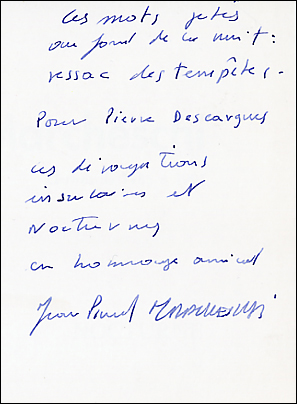 Ces mots jetés
au fond de la nuit :
ressac des tempêtes.
Pour Pierre Descargues
ces divagations
insulaires et
Nocturnes
en hommage amical
Jean Pinel